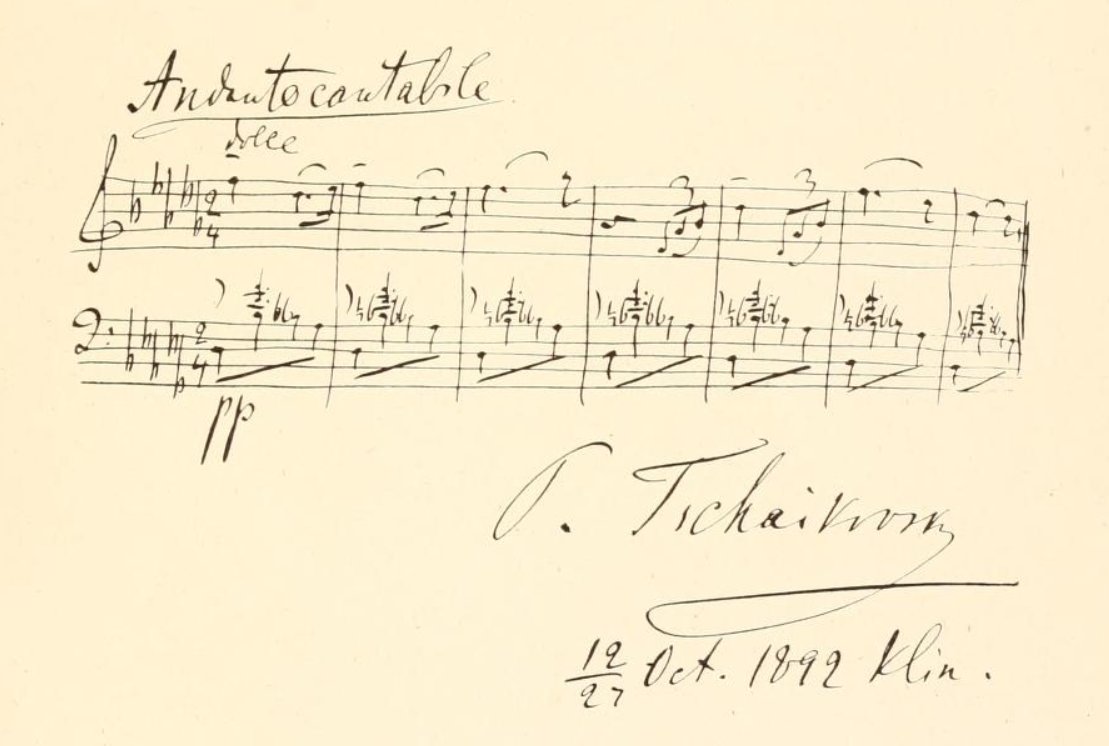 Andante cantabile
dolce
2
4
3 3
2
4
pp
P. Tschaikovsky
12
27 Oct. 1892 Klin.